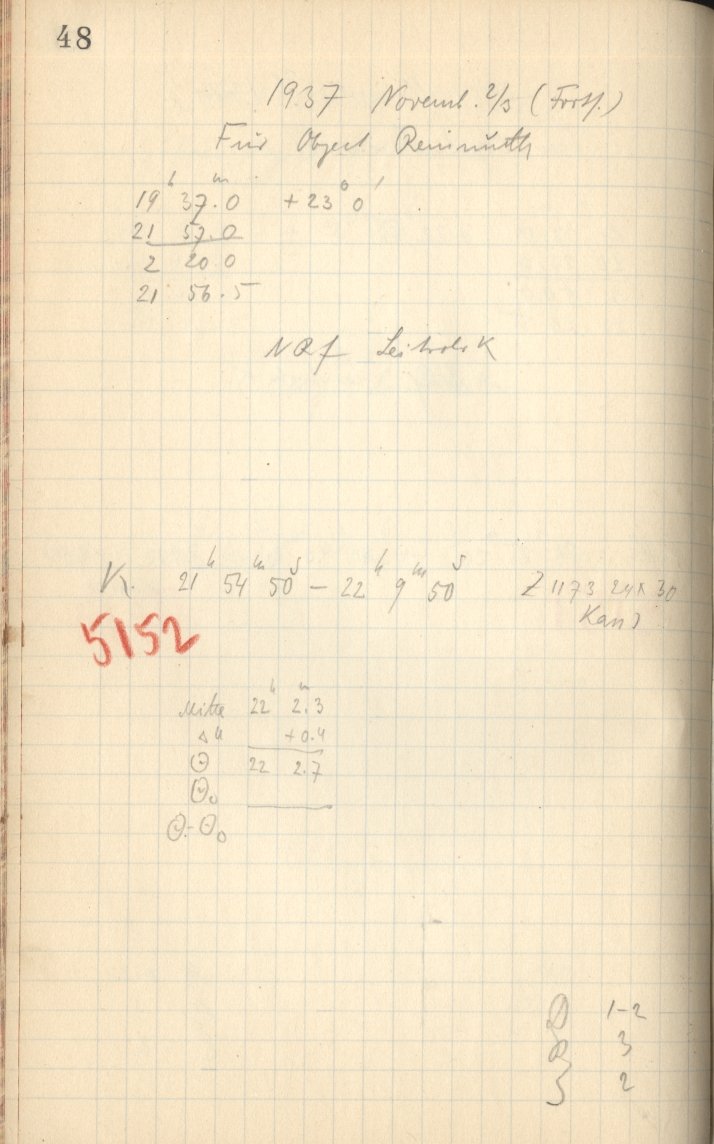 48
1937 Novemb. 2/3 (Forts.)
Für Object Reinmuth
19h 37m.0 +23° 0'
21 57.0
2 20 0
21 56.5
K. 21h 54m 50s – 22h 9m 50s Z 1173 24x30
5152
Mitte 22h 2m.3
Δu +0.4
Θ 22 2.7
Θ0
Θ-Θ0
1-2
3
2